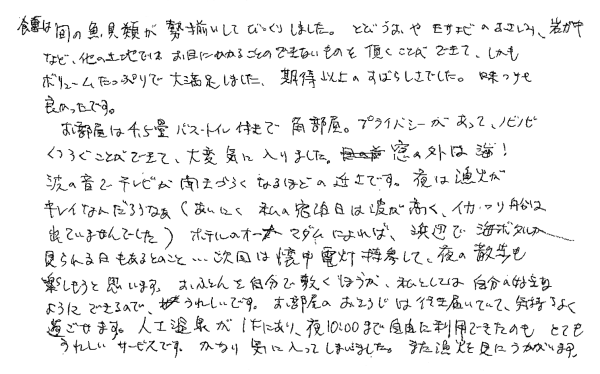 食事は旬の魚貝類が勢揃いしてびっくりしました。とびうおやモサエビのおさしみ、岩ガキ
など、他の土地ではお目にかかることのできないものを頂くことができて、しかも
ボリュームたっぷりで大満足しました。期待以上のすばらしさでした。味つけも
良かったです。
お部屋は4.5畳バス・トイレ付きで角部屋。プライバシーがあって、ノビノビ
くつろぐことができて、大変気に入りました。窓の外は海!
波の音でテレビが聞きづらくなるほどの近さです。夜は漁火が
キレイなんだろうなぁ(あいにく私の宿泊日は波が高く、イカつり船は
出ていませんでした)ホテルのオーナーマダムによれば、浜辺で海ボタルが
見られる日もあるとのこと…次回は懐中電灯持参して、夜の散歩も
楽しもうと思います。おふとんを自分で敷くほうが、私としては自分の好きな
ようにできるので、うれしいです。お部屋のおそうじは行き届いていて、気持ちよく
過ごせます。人工温泉が1Fにあり、夜10:00まで自由に利用できたのもとても
うれしいサービスです。かなり気に入ってしまいました。また漁火を見にうかがいます。